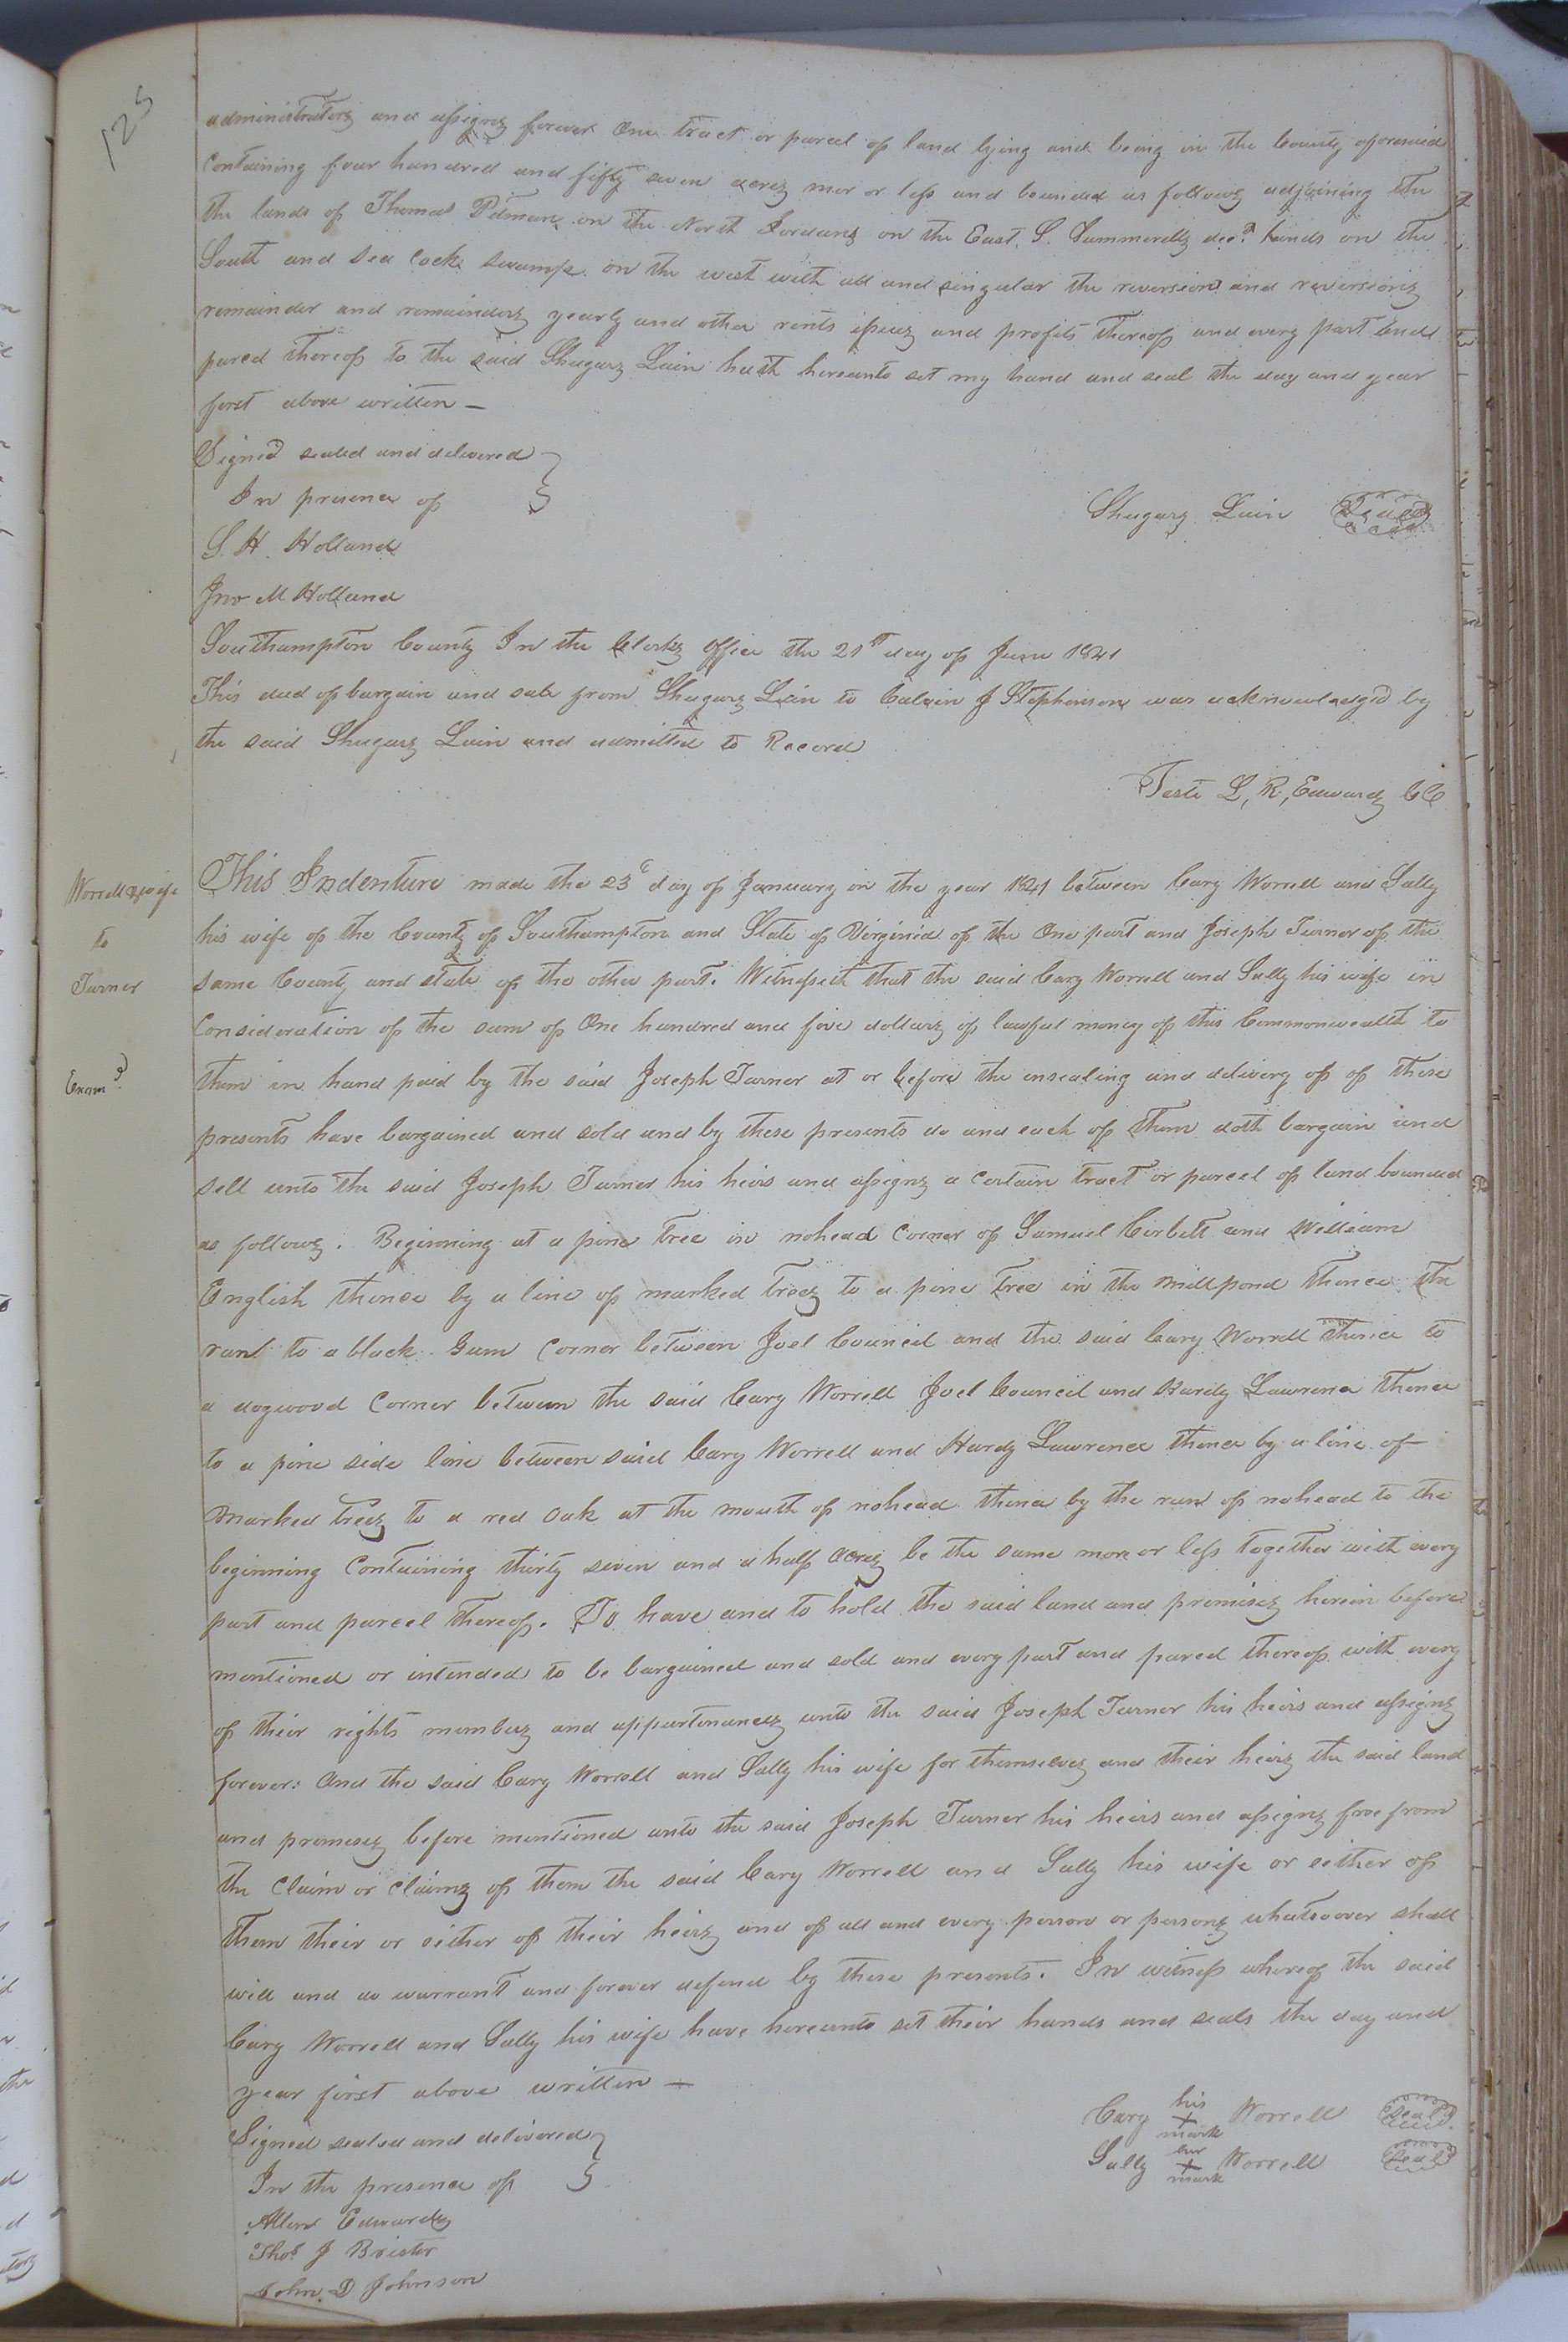 125
administrators and assigns forever One tract or parcel of land lying and being in the County aforesaid
containing four hundred and fifty seven acres mor or less and bounded as follows adjoining the
the lands of Thomas Pitman on the North Jordans on the East, S. Summerells dec.d lands on the
South and Sea cock swamp on the west with all and singular the reversion and reversions
remainder and remainders yearly and other rents issues and profits thereof and every part and
parcel thereof to the said Shugars Lain hath hereunto set my hand and seal the day and year
first above written —
Signed sealed and delivered }
In presence of }
Shugars Lain Seal
S. H. Holland
Jno M Holland
Southampton County In the Clerks Office the 21st day of June 1841
This deed of bargain and sale from Shugars Lain to Calvin J Stephenson was acknowledg'd by
the said Shugars Lain and admitted to Record
Teste L, R, Edwards CC
Worrell & wife
to
Turner
Exam.d
This Indenture made the 23d day of January in the year 1841 between Cary Worrell and Sally
his wife of the County of Southampton and State of Virginia of the One part and Joseph Turner of the
same County and state of the other part. Witnesseth that the said Cary Worrell and Sally his wife in
Consideration of the sum of One hundred and five dollars of lawful money of this Commonwealth to
them in hand paid by the said Joseph Turner at or before the ensealing and delivery of of these
presents have bargained and sold and by these presents do and each of them doth bargain and
sell unto the said Joseph Turner his heirs and assigns a certain tract or parcel of land bounded
as follows. Beginning at a pine tree in nohead corner of Samuel Corbett and William
English thence by a line of marked trees to a pine tree in the millpond thence the
run to a black Gum corner between Joel Council and the said Cary Worrell thence to
a dogwood corner between the said Cary Worrell Joel Council and Hardy Lawrence thence
to a pine side line between said Cary Worrell and Hardy Lawrence thence by a line of
marked trees to a red oak at the mouth of nohead thence by the run of nohead to the
beginning Containing thirty seven and a half acres be the same more or less together with every
part and parcel thereof. To have and to hold the said land and premises herein before
mentioned or intended to be bargained and sold and every part and parcel thereof with every
of their rights members and appurtenances unto the said Joseph Turner his heirs and assigns
forever: And the said Cary Worrell and Sally his wife for themselves and their heirs the said land
and premises before mentioned unto the said Joseph Turner his heirs and assigns free from
the Claim or claims of them the said Cary Worrell and Sally his wife or either of
them their or either of their heirs and of all and every person or persons whatsoever shall
will and do warrant and forever defend by these presents. In witness whereof the said
Cary Worrell and Sally his wife have hereunto set their hands and seals the day and
year first above written —
Cary his X mark Worrell Seal
Sally her X mark Worrell Seal
Signed sealed and delivered }
In the presence of }
Allen Edwards
Thos. J Brister
John. D Johnson